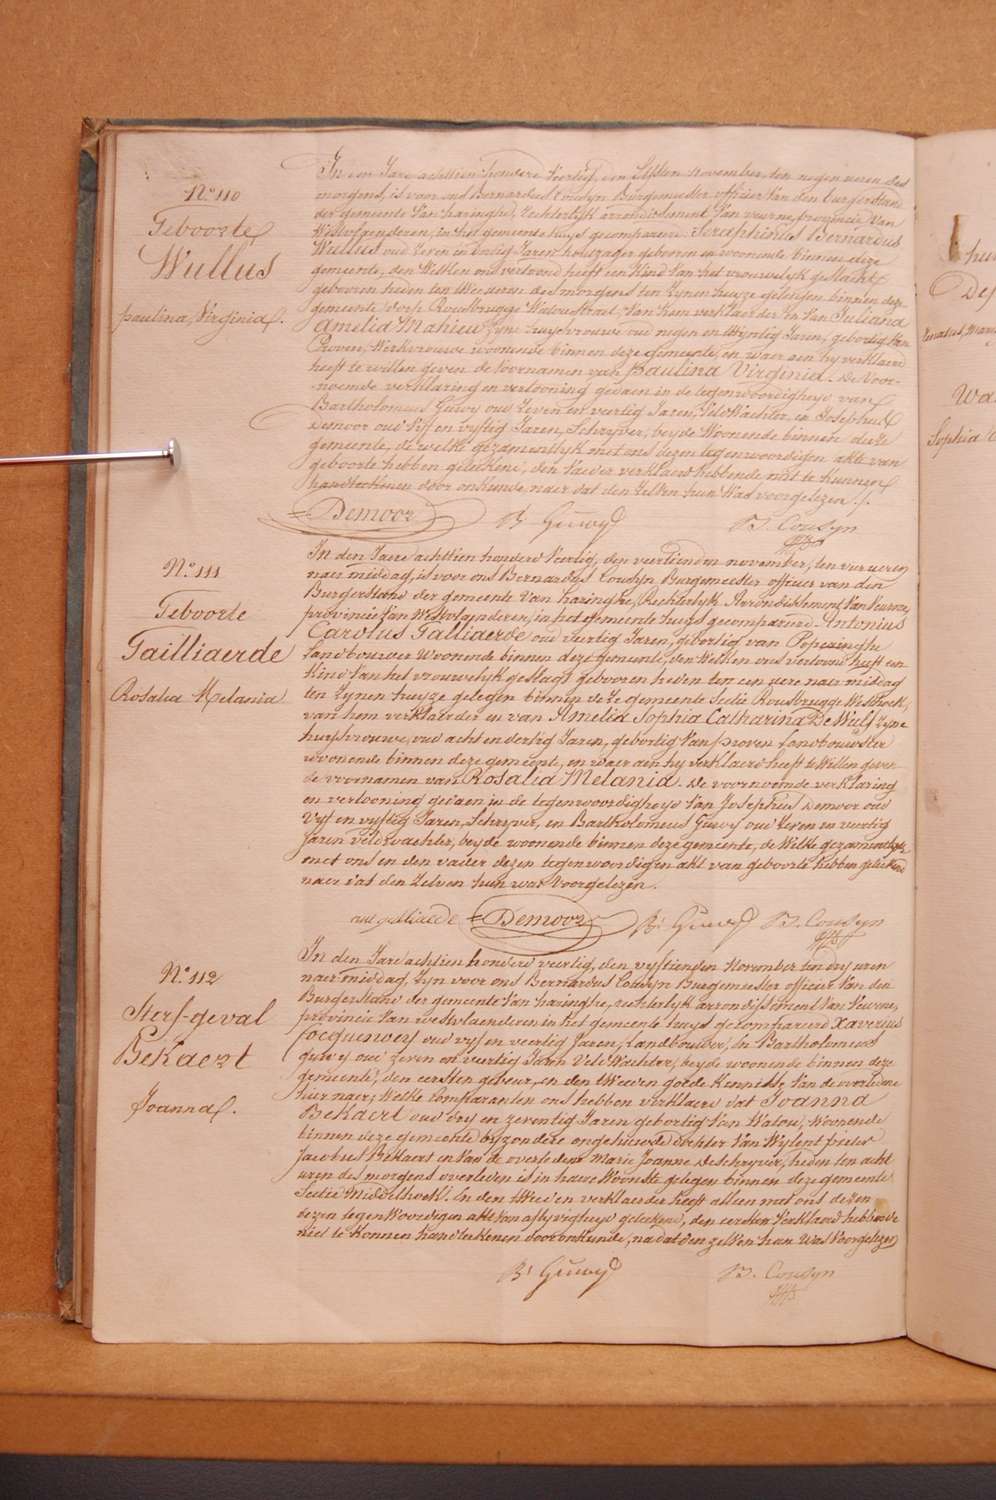 N.º 110
Geboorte
Wullus
paulina, Virginia.
In den Jare achttien honderd Veertig, den November, ten negen uren des
morgens, is voor ons Bernardus Cousyn Burgemeester officier van den burgerstand
der gemeente Van haringhe, rechterlyk arrondissement Van veurne, provincie Van
Westvlaenderen, in het gemeente huys gecompareerd Seraphinus Bernardus
Wullus oud Zeven en dertig Jaren houtzager geboren en woonende binnen deze
gemeente, den Welken ons vertoond heeft een kind Van het vrouwelyk geslacht
geboren heden ten twee uren des morgens ten Zynen huyze gelegen binnen deze
gemeente dorp Rousbrugge Van hem verklaerder en Van Juliana
Amelia Mahieu Zyne huysvrouwe oud negen en twyntig Jaren, geboortig Van
Proven, Werkvrouwe woonende binnen deze gemeente, en waer aen hy verklaerd
heeft te willen geven de Voornamen van paulina Virginia. De Voor-
noemde verklaring en vertooning gedaen in de tegenwoordigheyd van
Bartholomeus Geuwy oud Zeven en veertig Jaren, Veld Wachter, en Josephus
Demoor oud Vyf en vyftig Jaren, Schryver, beyde Woonende binnen deze
gemeente, de welke gezamentlyk met ons dezen tegenwoordigen akte van
geboorte hebben geteekend, den Vaeder verklaerd hebbende niet te kunnen
handteekenen door onkunde, naer dat den Zelven hun Was voorgelezen ./.
Demoor B. Geuwy B. Cousyn
N.º 111
Geboorte
Tailliaerde
Rosalia Melania
In den Jare achttien honderd Veertig, den veertienden november, ten vier uren
naer middag, is voor ons Bernardus Cousyn Burgemeester officier van den
Burgerstand der gemeente Van haringhe, Rechterlyk Arrondissement Van Veurne,
provincie Van Westvlaenderen, in het gemeente huys gecompareerd Antonius
Carolus Talliaerde oud viertig Jaren, geboortig van Poperinghe
Landbouwer Woonende binnen deze gemeente, den Welken ons vertoond heeft een
Kind Van het vrouwelyk geslagt geboren heden ten een ure naer middag
ten Zynen huyze gelegen binnen deze gemeente Sectie Rousbrugge Westhoek,
van hem verklaerder en van Amelia Sophia Catharina De Wulf Zyne
huysvrouwe, oud acht en dertig Jaren, geboortig Van proven Landbouwster
woonende binnen deze gemeente, en waer aen hy verklaerd heeft te Willen geven
de voornamen van Rosalia Melania. De voornoemde verklaring
en vertooning gedaen in de tegenwoordigheyd Van Josephus Demoor oud
Vyf en vyftig Jaren, Schryver, en Bartholomeus Geuwy oud Zeven en veertig
Jaren Veldwachter, beyde woonende binnen deze gemeente, de Welke gezamentlyk
met ons en den vader dezen tegenwoordigen akt van geboorte hebben geteekend
naer dat den Zelven hun was Voorgelezen.
Demoor B. Geuwy B. Cousyn
N.º 112
Sterf-geval
Bekaert
Joanna.
In den Jare achtien honderd veertig, den vyftienden November ten dry uren
naer middag, Zyn voor ons Bernardus Cousyn Burgemeester officier Van den
Burgerstand der gemeente Van haringhe, rechterlyk arrondissement Van Veurne,
provincie Van westvlaenderen in het gemeente huys gecompareerd Xaverius
Jocquewey oud vyf en veertig Jaren, Landbouwer, En Bartholomeus
geuwy oud zeven en veertig Jaren Veld Wachter, beyde woonende binnen deze
gemeente, den eersten gebeur, en den tweeden goede kenniste Van de overledene
hier naer; Welke Comparanten ons hebben verklaerd dat Joanna
Bekaert oud dry en zeventig Jaren geboortig Van Watou, Woonende
binnen deze gemeente byzondere ongehuwde dochter Van Wylent pieter
Jacobus Bekaert en Van de overledene Marie Joanne Deschryver, heden ten acht
uren des morgens overleden is in haere Woonste gelegen binnen deze gemeente
Sectie Middelhoek. En den tweeden verklaerder heeft alleen met ons dezen
dezen tegenWoordigen akte Van aflyvigheyd geteekend, den eersten Verklaerd hebbende
niet te konnen handteekenen door onkunde, na dat den zelven hun Was Voorgelezen
B. Geuwy B. Cousyn
Wa
Sophia